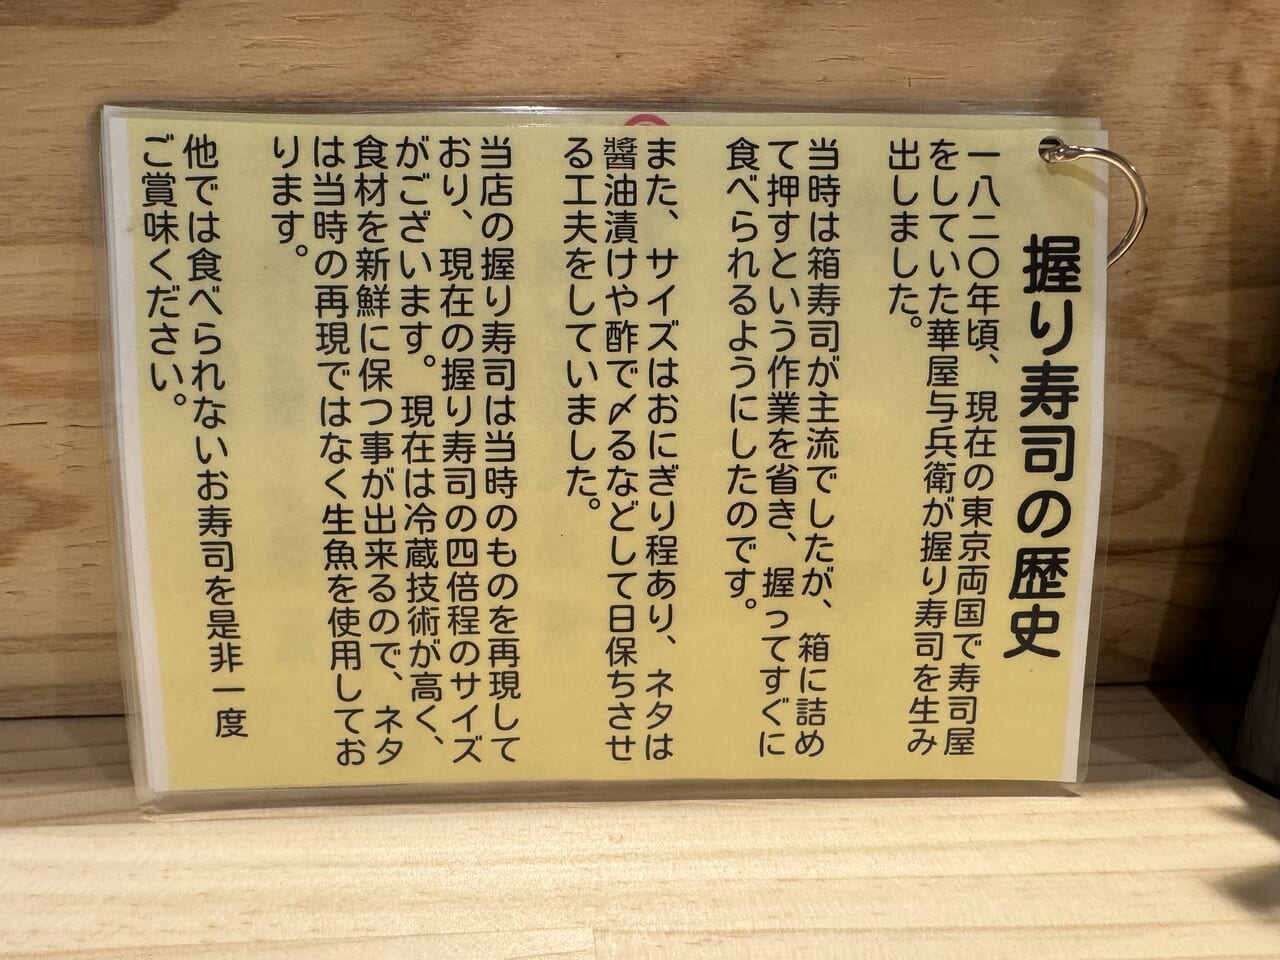 握り寿司の歴史
一八二〇年頃、現在の東京両国で寿司屋
をしていた華屋与兵衛が握り寿司を生み
出しました。
当時は箱寿司が主流でしたが、箱に詰め
て押すという作業を省き、握ってすぐに
食べられるようにしたのです。
また、サイズはおにぎり程あり、ネタは
醬油漬けや酢で〆るなどして日保ちさせ
る工夫をしていました。
当店の握り寿司は当時のものを再現して
おり、現在の握り寿司の四倍程のサイズ
がございます。現在は冷蔵技術が高く、
食材を新鮮に保つ事が出来るので、ネタ
は当時の再現ではなく生魚を使用してお
ります。
他では食べられないお寿司を是非一度
ご賞味ください。